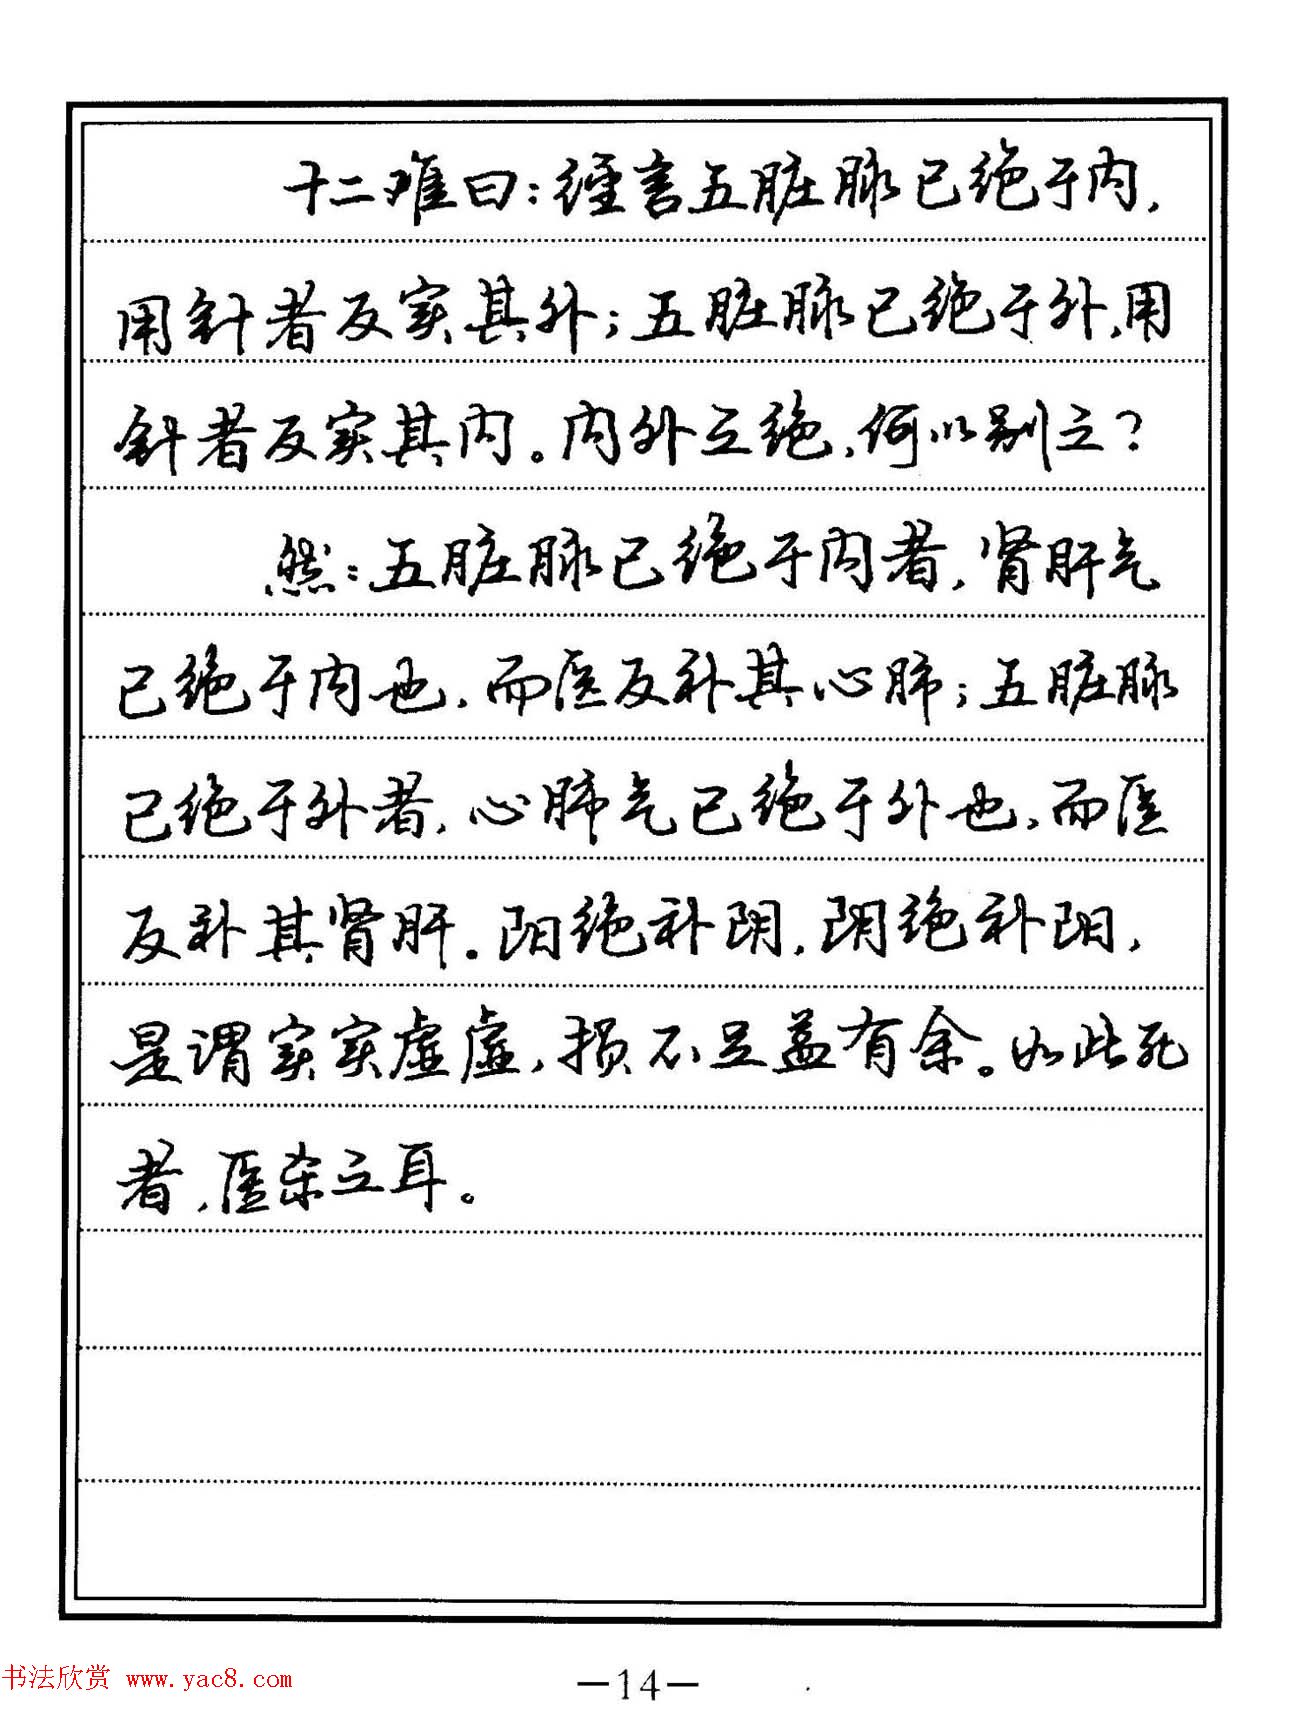 十二难曰：经言五脏脉已绝于内，
用针者反实其外；五脏脉已绝于外，用
针者反实其内。内外之绝，何以别之？
然：五脏脉已绝于内者，肾肝气
已绝于内也，而医反补其心肺；五脏脉
已绝于外者，心肺气已绝于外也，而医
反补其肾肝。阳绝补阴，阴绝补阳，
是谓实实虚虚，损不足益有余。如此死
者，医杀之耳。
书法欣赏 www.yac8.com
—14—